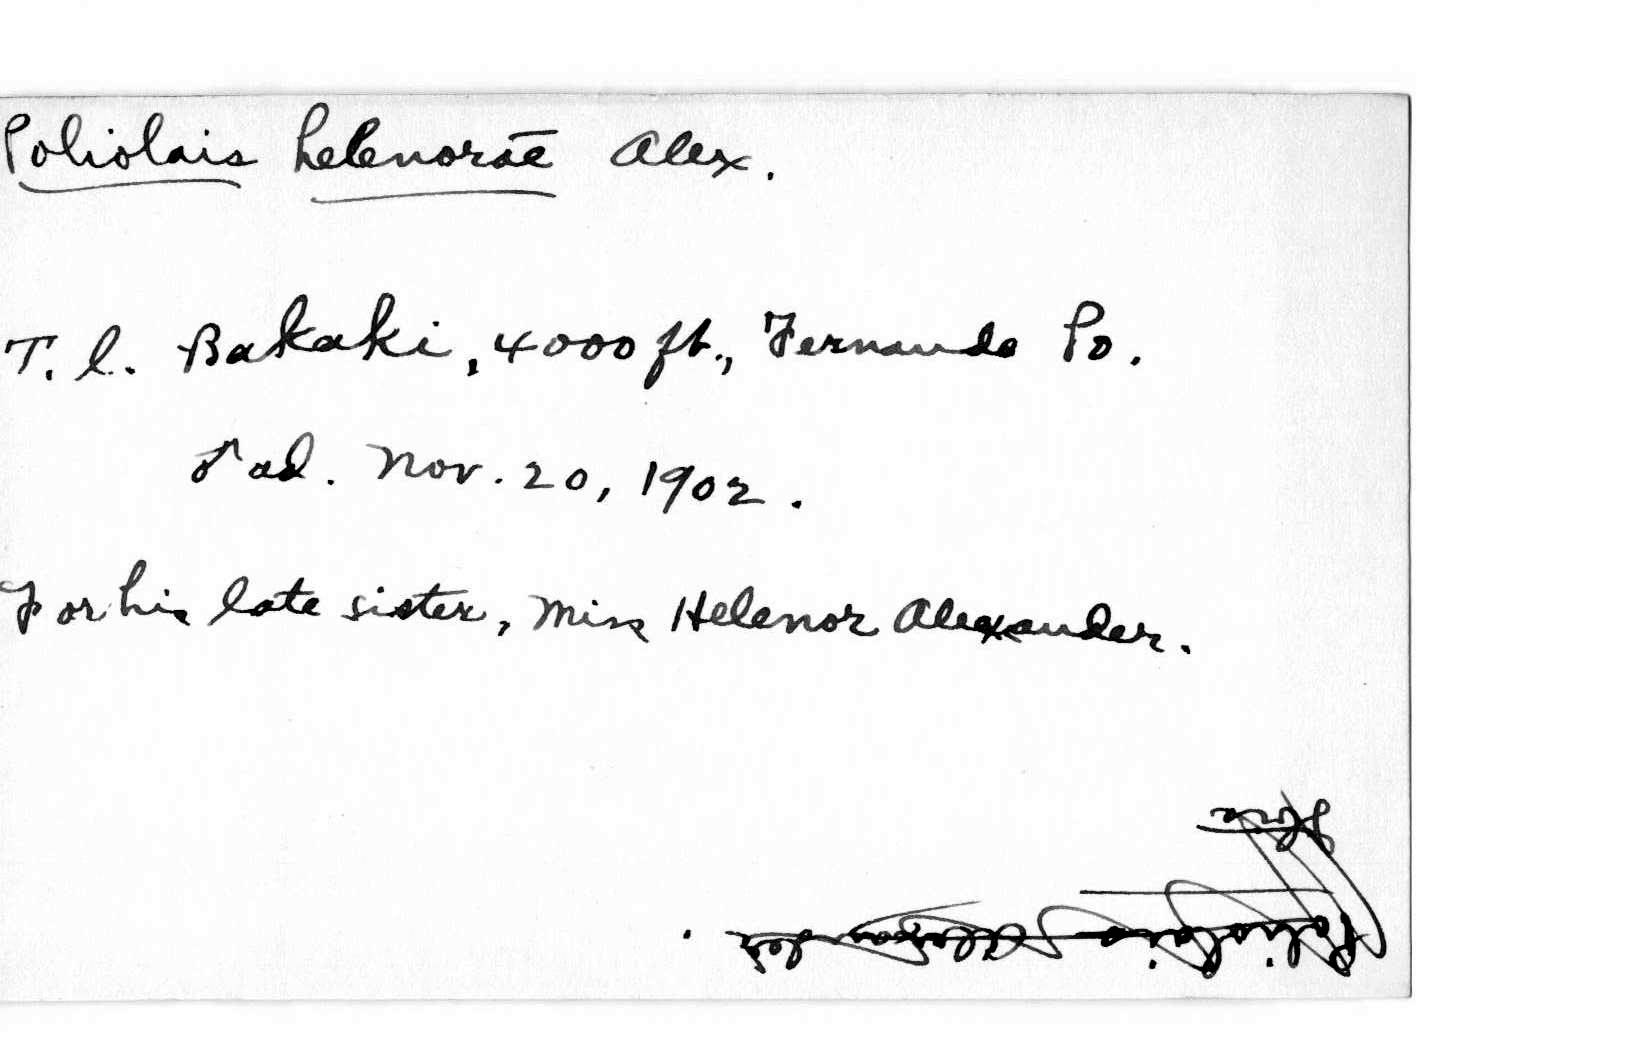 Poliolais helenorae Alex.
T. l. Bakaki, 4000 ft., Fernando Po.
♂ ad. Nov. 20, 1902.
For his late sister, Miss Helenor Alexander.
Poliolais Alexander.